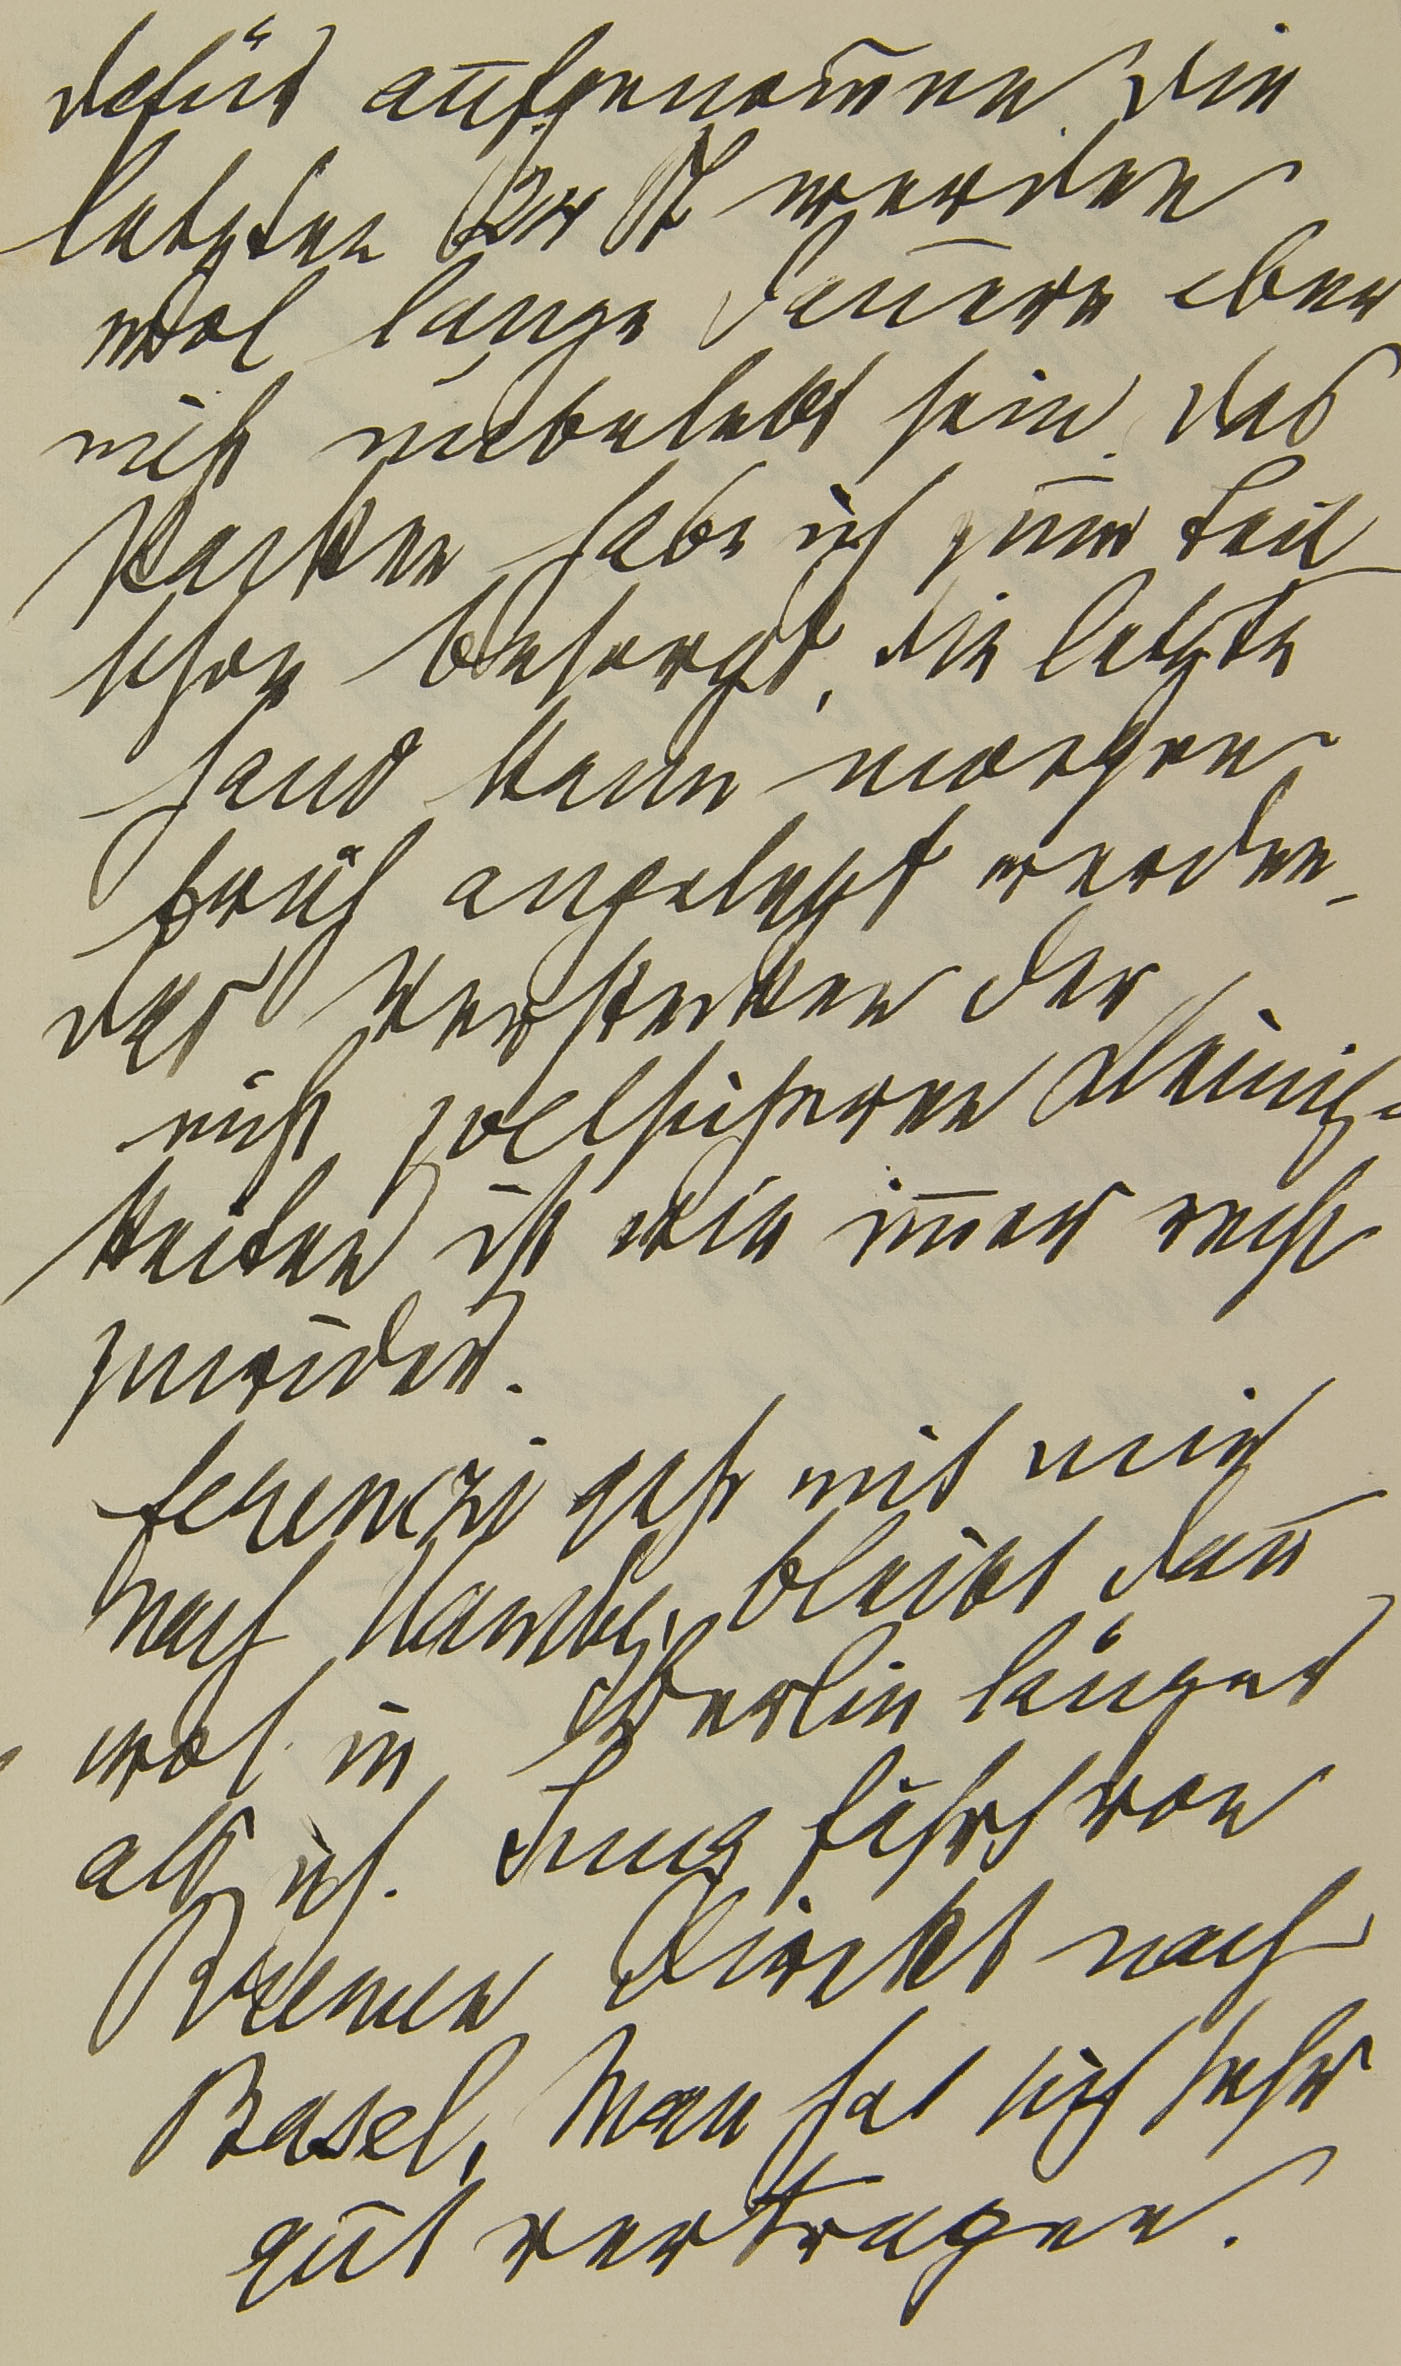 dafür aufgenom̅en. Die
letzten 24 St werden
wol lange dauern aber
nicht unbelebt sein. Das
Packen habe ich zum Teil
schon besorgt, die letzte
Hand kann morgen
früh angelegt werden.
Das Verstecken der
nicht zollsicheren Kleinig-
keiten ist wie im̅er recht
zuwider.
Ferenczi geht mit mir
nach Hambg, bleibt dan̅
wol in Berlin länger
als ich. Jung fährt von
Bremen direkt nach
Basel. Man hat sich sehr
gut vertragen.